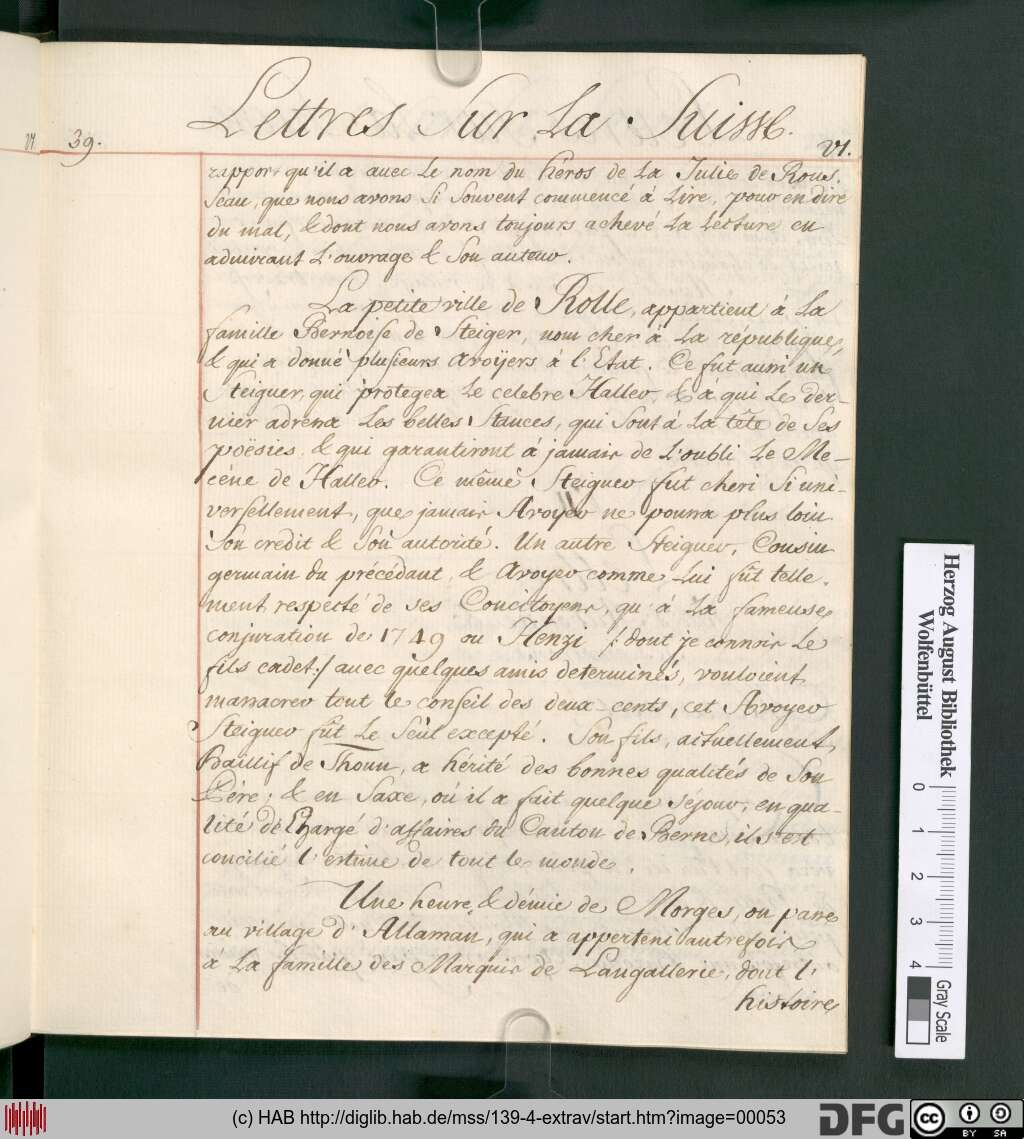 Lettres Sur La Suisse.
VI. 39. VI.
rappor, qu'il a avec Le nom du héros de La Julie de Rous-
seau, que nous avons Si Souvent commencé à Lire, pour en dire
du mal, & dont nous avons toujours achevé La Lecture en
admirant L'ouvrage & Son auteur.
La petite ville de Rolle, appartient à La
famille Bernoise de Steiger, nom cher à La république,
& qui a donné plusieurs Avoÿers à l'Etat. Ce fut aussi un
Steiguer, qui protegea Le celebre Haller, & à qui Le der-
nier adressa Les belles Stances, qui Sont à La tête de Ses
poësies, & qui garantiront à jamais de L'oubli Le Me-
céne de Haller. Ce même Steiguer fut cheri Si uni-
versellement, que jamais Avoyer ne poussa plus loin
Son credit & Son autorité. Un autre Steiguer, Cousin
germain du précédant, & Avoyer comme Lui fût telle-
ment respecté de ses Concitoyens, qu'à La fameuse
conjuration de 1749 ou Henzi /: dont je connois Le
fils cadet :/ avec quelques amis determinés, vouloient
massacrer tout le conseil des deux-cents, cet Avoyer
Steiguer fût Le Seul excepté. Son fils, actuellement
Baillif de Thoun, a hérité des bonnes qualités de Son
Père; & en Saxe, où il a fait quelque Séjour, en qua-
lité de Chargé d'affaires du Canton de Berne, il s'est
concilié l'estime de tout le monde.
Une heure & démie de Morges, on passe
au village d'Allaman, qui a apperteni autrefois
à La famille des Marquis de Langallerie, dont l'
histoire
Herzog August Bibliothek
Wolfenbüttel
0 1 2 3 4
Gray Scale
(c) HAB http://diglib.hab.de/mss/139-4-extrav/start.htm?image=00053
DFG
cc BY SA